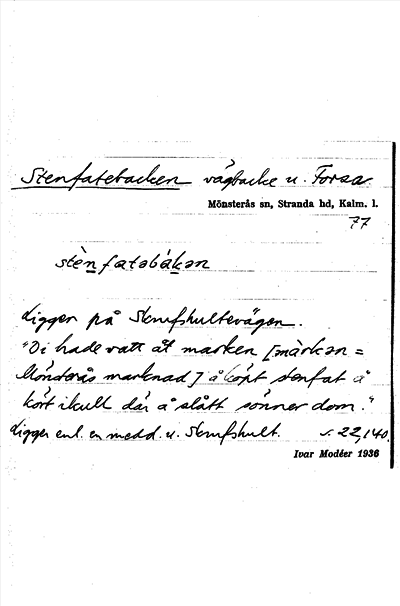 Stenfatebacken vägbacke u. Forsa.
Mönsterås sn, Stranda hd, Kalm. l.
77
stèn fatəbákən
Ligger på Skrufshultevägen.
"Di hade vatt åt marken [màrkən =
Mönsterås marknad] å köpt stenfat å
kört ikull där å slått sönner dom."
Ligger enl. en medd. u. Skrufshult. s. 22,140.
Ivar Modéer 1936